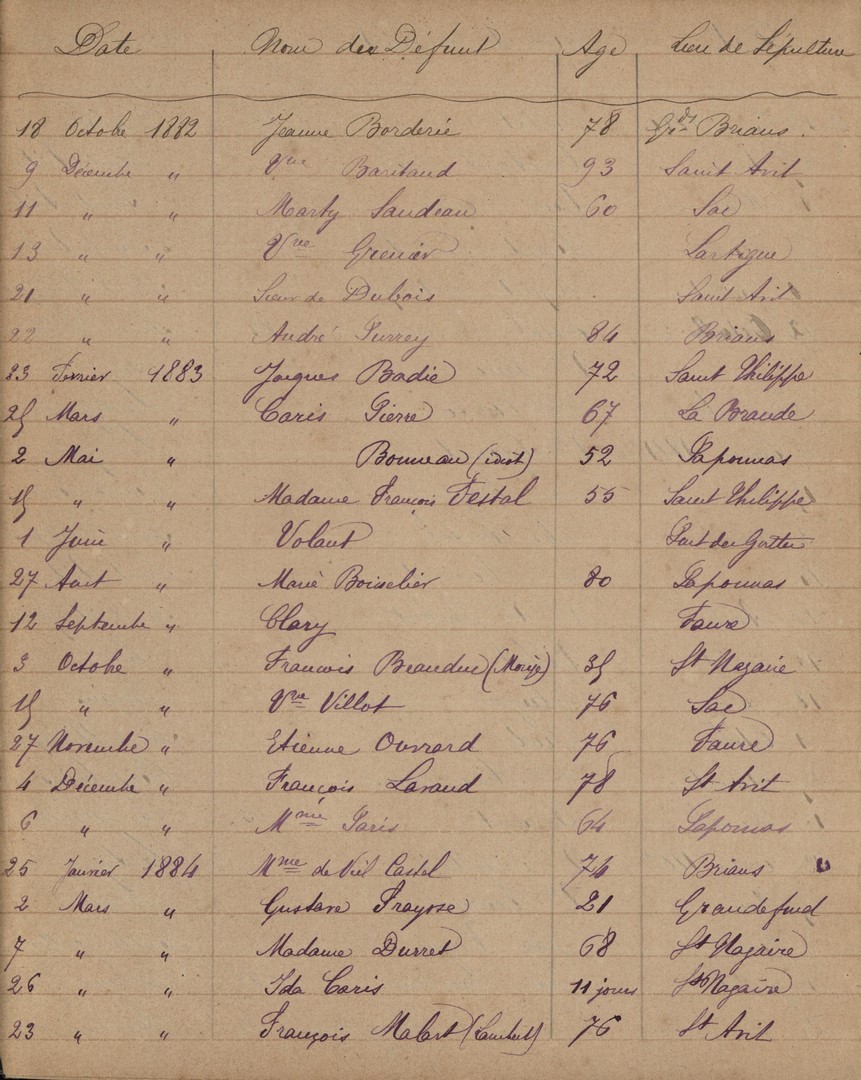 Date Nom des Défunt Age Lieu de Sépulture
18 Octobe 1882 Jeanne Borderie 78 Gds Brians.
9 Décembe " Vve Baritaud 93 Saint Avit
11 " " Marty Landeau 60 Sac
13 " " Vve Grenier Lartigue
21 " " Sieur de Dubois Saint Avit
22 " " André Purrey 84 Brians
23 Février 1883 Jacques Badie 72 Saint Philippe
25 Mars " Caris Pierre 67 La Brande
2 Mai " Bonneau (idiot) 52 Laponnas
15 " " Madame François Festal 55 Saint Philippe
1 Juin " Volant
27 Aout " Marie Boisselier 80 Laponnas
12 Septembe " Clary Faure
3 Octobe " Francois Beauduc 35 St Nazaire
15 " " Vve Villot 76 Sac
27 Novembe " Etienne Ouvrard 76 Faure
4 Décembe " François Lavaud 78 St Avit
6 " " Mme Paris 64 Laponnas
25 Janvier 1884 Mme de Viel Castel 74 Brians
2 Mars " Gustave Frayose 21 Grandefond
7 " " Madame Durret 68 St Nazaire
26 " " Ida Caris 11 jours St Nazaire
23 " " François Malart 76 St Avit